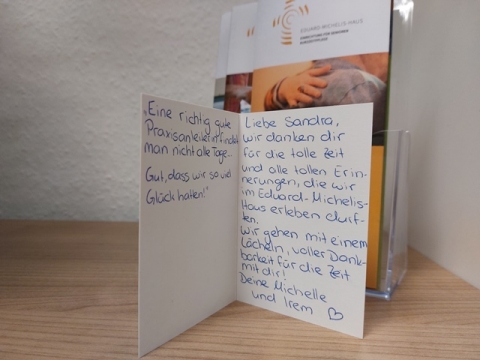 „Eine richtig gute
Praxisanleiterin findet
man nicht alle Tage...
Gut, dass wir so viel
Glück hatten!"
Liebe Sandra,
wir danken dir
für die tolle Zeit
und alle tollen Erin-
nerungen, die wir
im Eduard-Michelis-
Haus erleben durf-
ten.
Wir gehen mit einem
Lächeln, voller Dank-
barkeit für die Zeit
mit dir!
Deine Michelle
und Irem
EDUARD-MICHELIS-HAUS
EINRICHTUNG FÜR SENIOREN